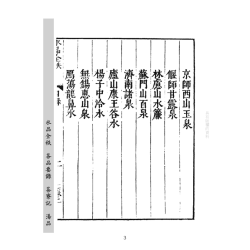 京師西山玉泉
偃師甘露泉
林慮山水簾
蘇門山百泉
濟南諸泉
廬山康王谷水
楊子中泠水
無錫惠山泉
鴈蕩龍鼻水
水品全秩
目錄
水品全秩 茶品要錄 茶寮記 湯品
3